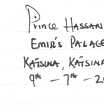 Prince Hassan
Emir's Palace
Katsina, Katsina
9th - 7th - 20